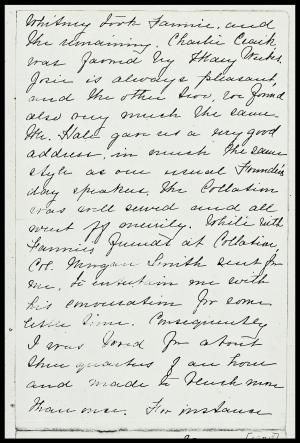 Whitney took Fannie, and
the remaining, Charlie Clark,
was favored by Mary Weeks.
Josie is always pleasant,
and the other two, we found
also very much the same.
Mr. Hale gave us a very good
address, in much the same
style as our usual Founder's
day speakers, the Collation
was well served and all
went off merrily. While with
Fannie's friends at Collation,
Col. Morgan Smith sent for
me, to entertain me with
his conversation for some
little time. Consequently
I was bored for about
three quarters of an hour
and made to blush more
than once. For instance